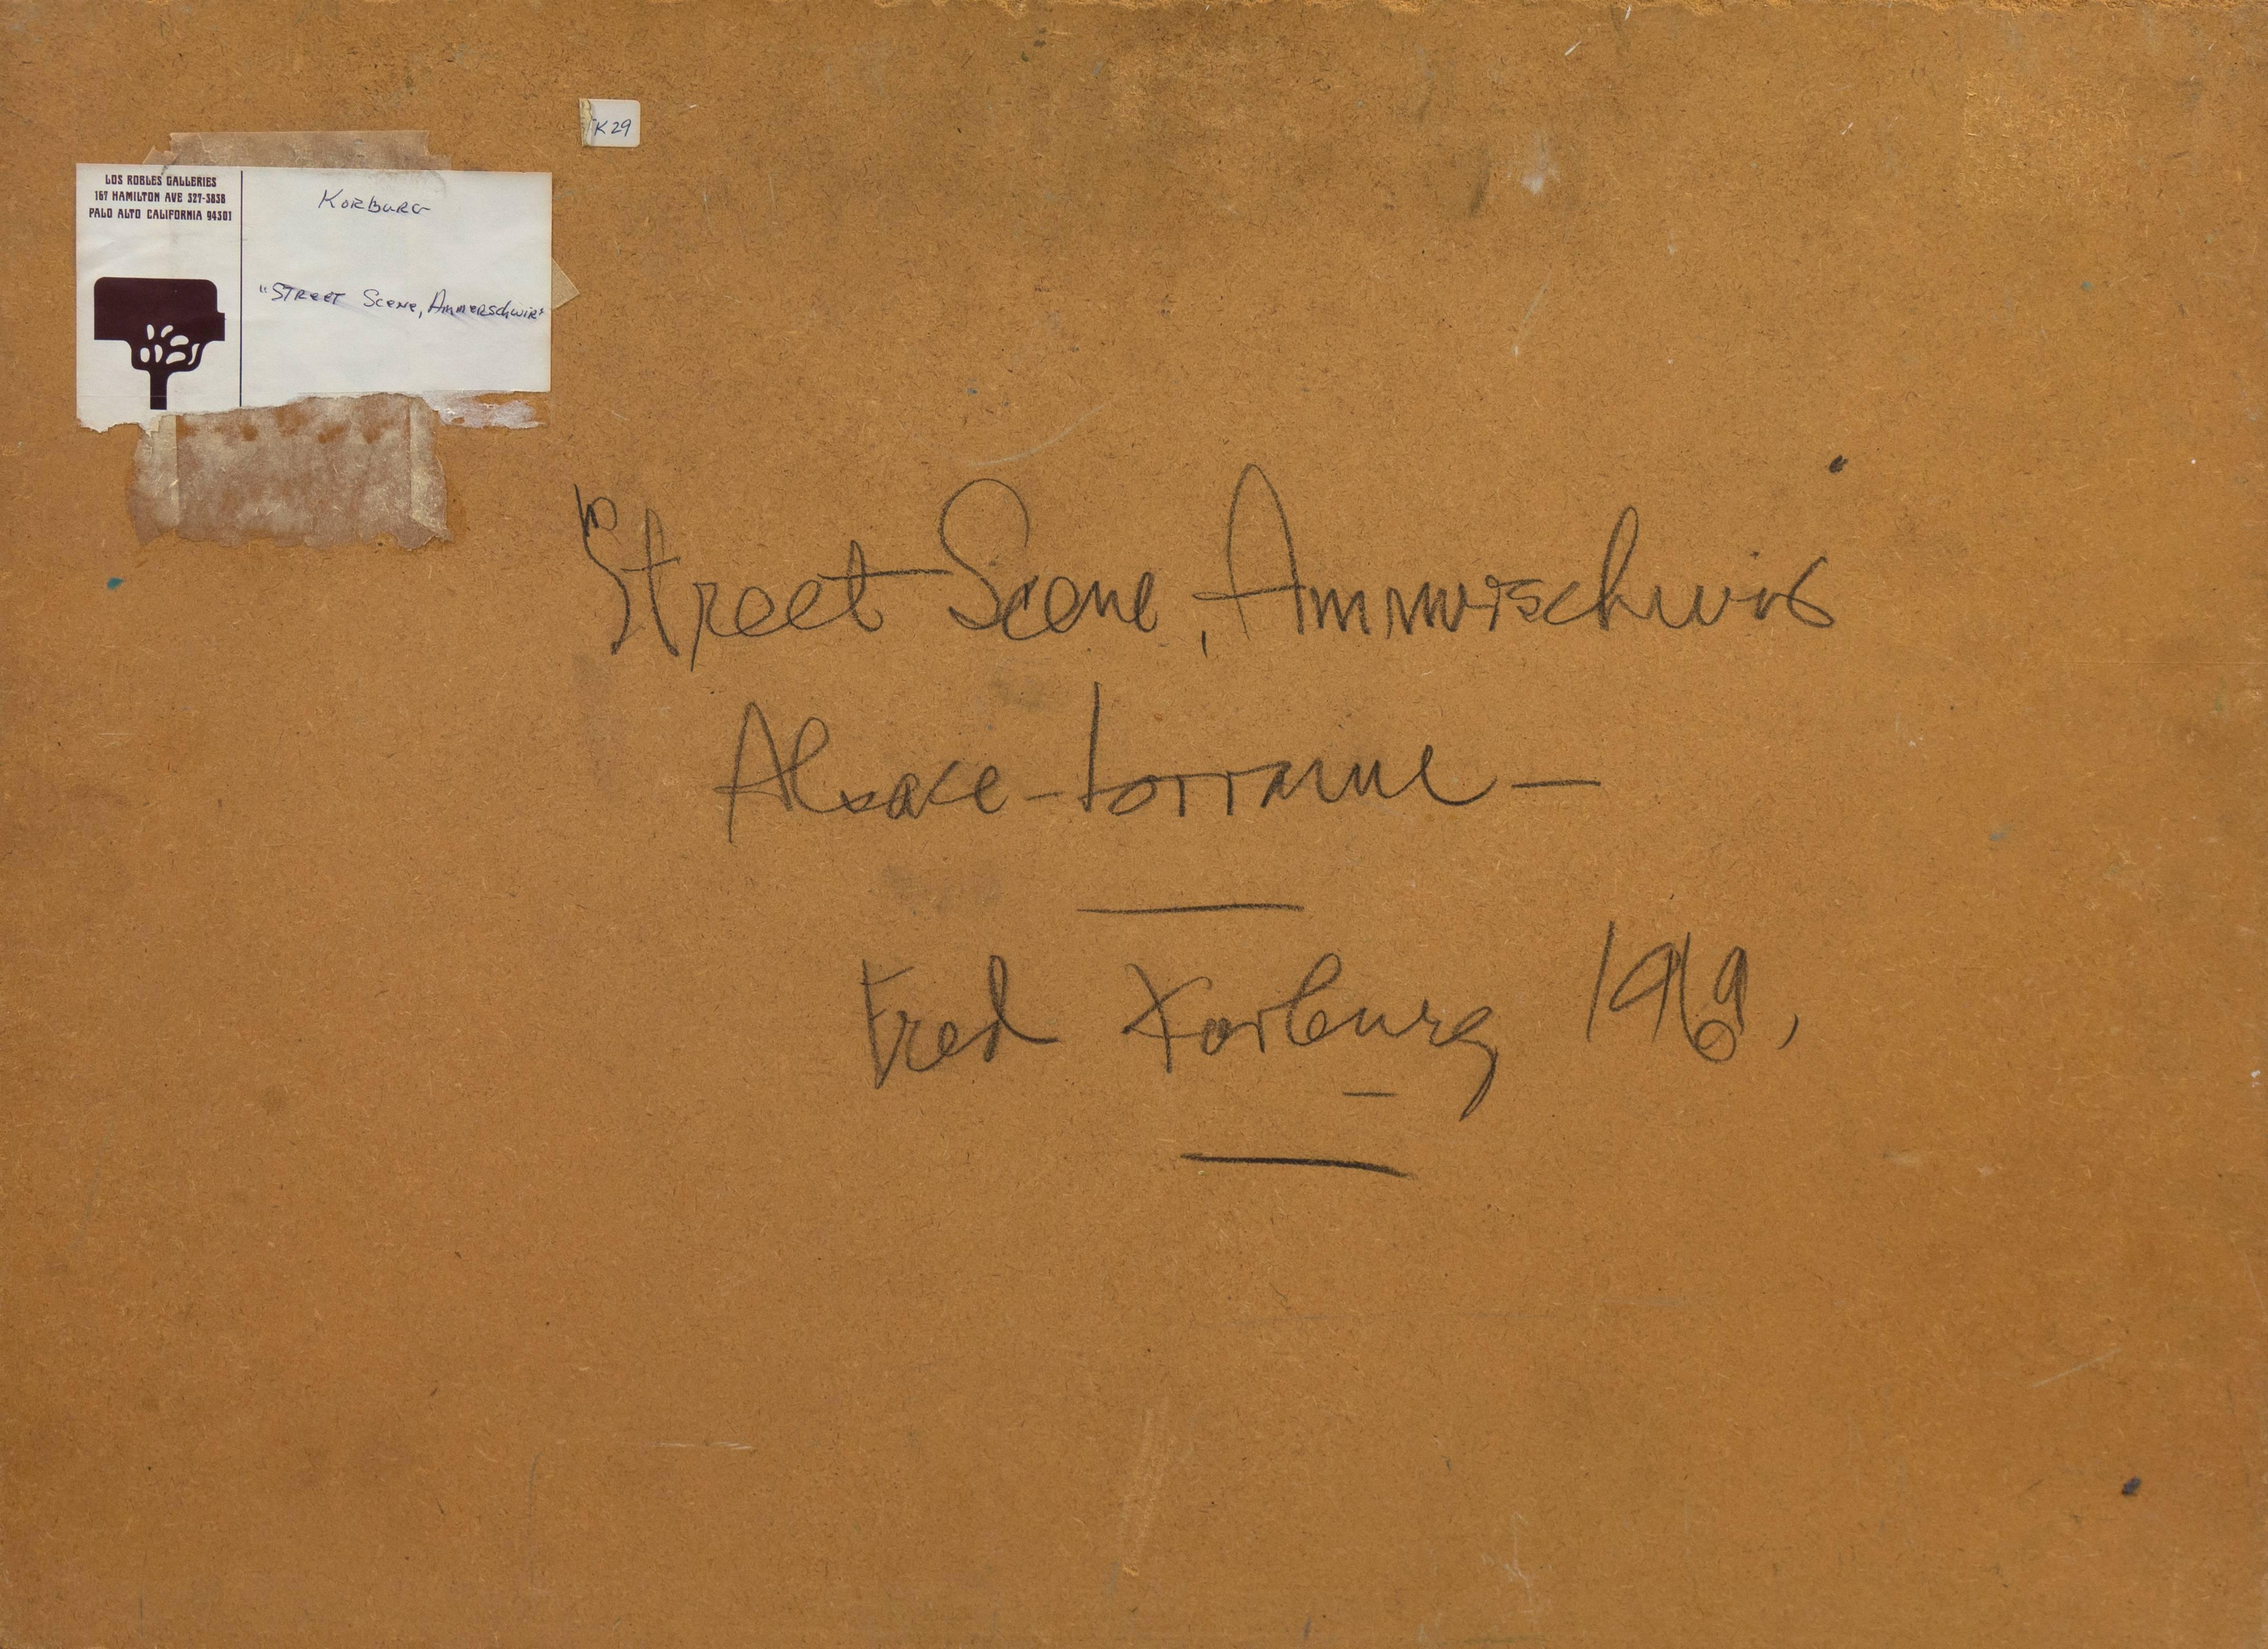 K29
LOS ROBLES GALLERIES
167 HAMILTON AVE 327-3838
PALO ALTO CALIFORNIA 94301
KORBURG
"STREET SCENE, AMMERSCHWIR"
"Street Scene, Ammerschwir"
Alsace-Lorraine —
Fred Korburg 1969,